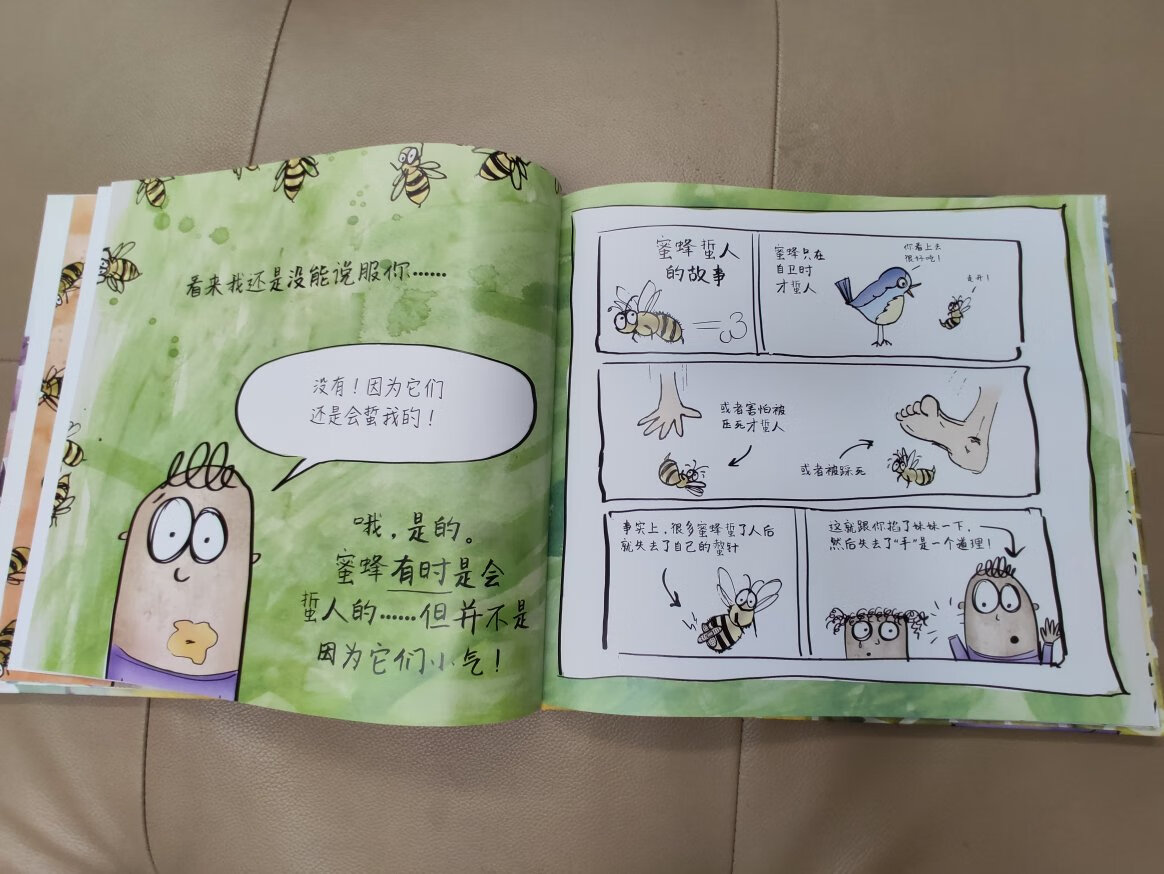 看来我还是没能说服你……
没有！因为它们
还是会蜇我的！
哦，是的。
蜜蜂有时是会
蜇人的……但并不是
因为它们小气！
蜜蜂蜇人
的故事
蜜蜂只在
自卫时
才蜇人
你看上去
很好吃！
走开！
或者害怕被
压死才蜇人
或者被踩死
事实上，很多蜜蜂蜇了人后
就失去了自己的螫针
这就跟你掐了妹妹一下，
然后失去了“手”是一个道理！